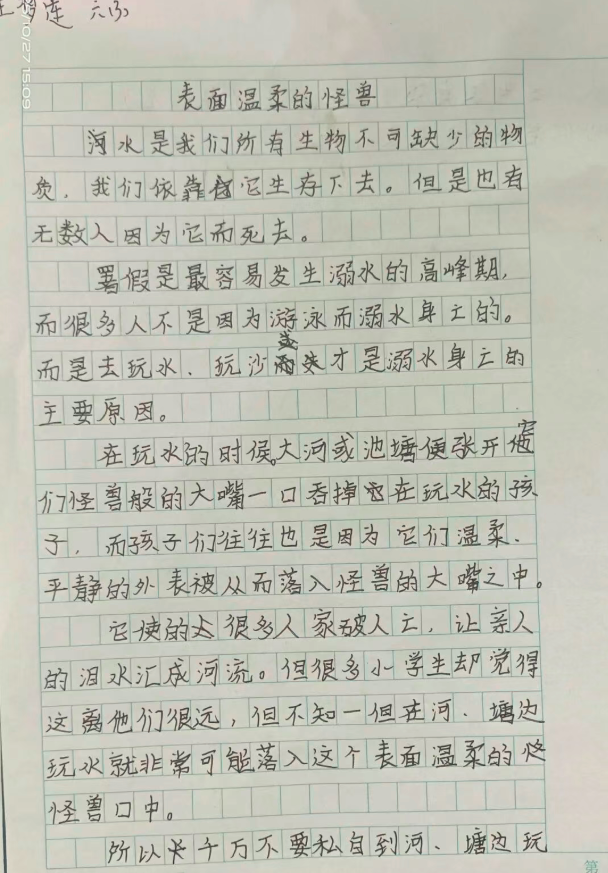 六(3)
10/27 15:09
表面温柔的怪兽
河水是我们所有生物不可缺少的物
质，我们依靠它生存下去。但是也有
无数人因为它而死去。
署假是最容易发生溺水的高峰期，
而很多人不是因为游泳而溺水身亡的。
而是去玩水、玩沙或才是溺水身亡的
主要原因。
在玩水的时候，大河或池塘便张开它
们怪兽般的大嘴一口吞掉在玩水的孩
子，而孩子们往往也是因为它们温柔、
平静的外表被从而落入怪兽的大嘴之中。
它使的很多人家破人亡，让亲人
的泪水汇成河流。但很多小学生却觉得
这离他们很远，但不知一但在河、塘边
玩水就非常可能落入这个表面温柔的
怪兽口中。
所以千万不要私自到河、塘边玩
第